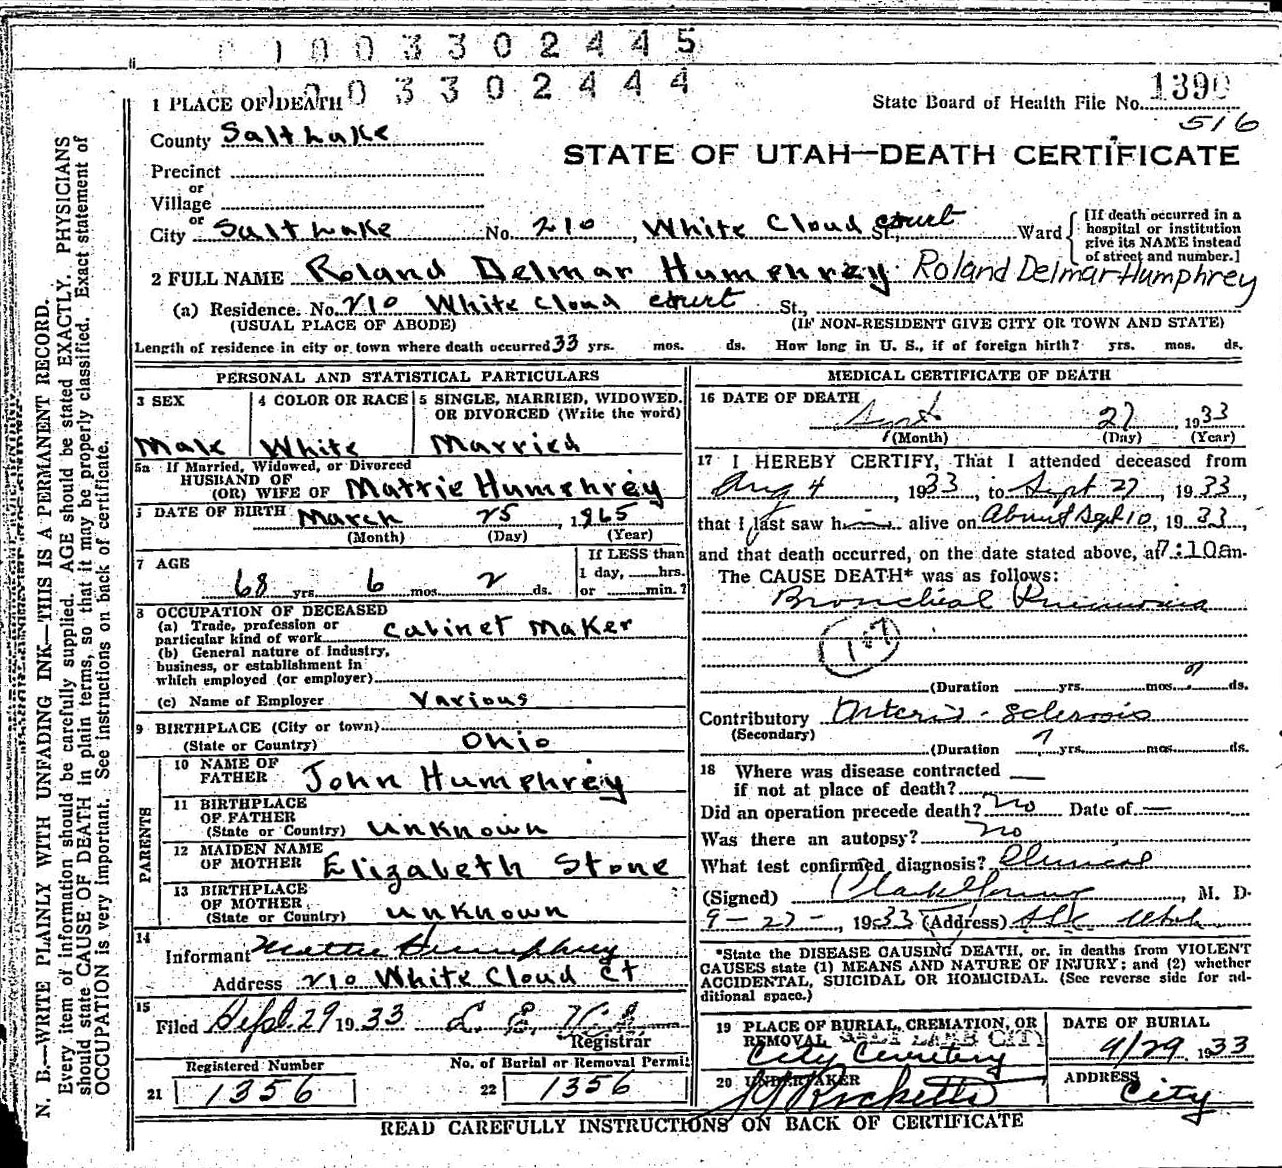 1003302445
1003302444
State Board of Health File No. 1390
516
STATE OF UTAH—DEATH CERTIFICATE
1 PLACE OF DEATH
County Salt Lake
Precinct
or
Village
or
City Salt Lake No. 210, White Cloud Court St., Ward
[If death occurred in a
hospital or institution
give its NAME instead
of street and number.]
2 FULL NAME Roland Delmar Humphrey Roland Delmar Humphrey
(a) Residence. No. 210 White Cloud Court St.,
(USUAL PLACE OF ABODE) (IF NON-RESIDENT GIVE CITY OR TOWN AND STATE)
Length of residence in city or town where death occurred 33 yrs. mos. ds. How long in U. S., if of foreign birth? yrs. mos. ds.
PERSONAL AND STATISTICAL PARTICULARS
3 SEX 4 COLOR OR RACE 5 SINGLE, MARRIED, WIDOWED,
OR DIVORCED (Write the word)
Male White Married
5a If Married, Widowed, or Divorced
HUSBAND OF
(OR) WIFE OF Mattie Humphrey
DATE OF BIRTH March 25, 1865
(Month) (Day) (Year)
7 AGE If LESS than
1 day, hrs.
68 yrs 6 mos 2 ds. or min.?
8 OCCUPATION OF DECEASED
(a) Trade, profession or
particular kind of work Cabinet Maker
(b) General nature of industry,
business, or establishment in
which employed (or employer)
(c) Name of Employer Various
9 BIRTHPLACE (City or town)
(State or Country) Ohio
PARENTS
10 NAME OF
FATHER John Humphrey
11 BIRTHPLACE
OF FATHER
(State or Country) Unknown
12 MAIDEN NAME
OF MOTHER Elizabeth Stone
13 BIRTHPLACE
OF MOTHER
(State or Country) Unknown
14
Informant Mattie Humphrey
Address 210 White Cloud Ct
15
Filed Sept. 29 1933 L. E.
Registrar
Registered Number No. of Burial or Removal Permit
21 1356 22 1356
MEDICAL CERTIFICATE OF DEATH
16 DATE OF DEATH
Sept 27, 1933
(Month) (Day) (Year)
17 I HEREBY CERTIFY, That I attended deceased from
Aug 4, 1933, to Sept 27, 1933,
that I last saw h alive on About Sept 10, 1933,
and that death occurred, on the date stated above, at 7:10 am.
The CAUSE DEATH* was as follows:
Bronchial Pneumonia
107
(Duration yrs. mos. ds.
Contributory Arterio-sclerosis
(Secondary)
(Duration ? yrs. mos ds.
18 Where was disease contracted
if not at place of death?
Did an operation precede death? No Date of —
Was there an autopsy? No
What test confirmed diagnosis? Clinical
(Signed) Clark Young, M. D.
9-27-, 1933 (Address) SLC Utah
*State the DISEASE CAUSING DEATH, or, in deaths from VIOLENT
CAUSES state (1) MEANS AND NATURE OF INJURY; and (2) whether
ACCIDENTAL, SUICIDAL OR HOMICIDAL. (See reverse side for ad-
ditional space.)
19 PLACE OF BURIAL, CREMATION, OR
REMOVAL SALT LAKE CITY
City Cemetery
DATE OF BURIAL
9/29 1933
20 UNDERTAKER
Ricketts
ADDRESS
City
READ CAREFULLY INSTRUCTIONS ON BACK OF CERTIFICATE
N. B.—WRITE PLAINLY WITH UNFADING INK—THIS IS A PERMANENT RECORD.
Every item of information should be carefully supplied. AGE should be stated EXACTLY. PHYSICIANS
should state CAUSE OF DEATH in plain terms, so that it may be properly classified. Exact statement of
OCCUPATION is very important. See instructions on back of certificate.